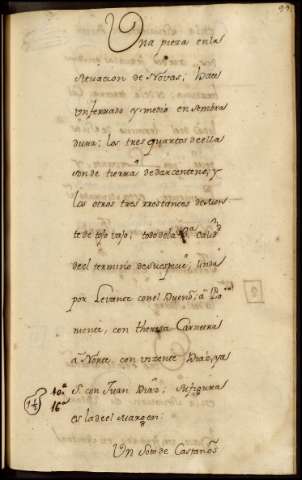 99
Una pieza en la
situacion de Nocas; hace
un ferrado y medio en sembra
dura; los tres quartos de ella
son de tierra de dar centeno, y
los otros tres restantes de mon
te de tojo rajo, todo de la
de el termino de su especie; linda
por Levante con el Dueño; a Po
niente, con theresa Carneira
a Norte, con Vicente Diaz, y a
S. con Juan Diaz; Su figura
es la de el Margen:
Un Soto de Castaños
10.ª
16.ª
14